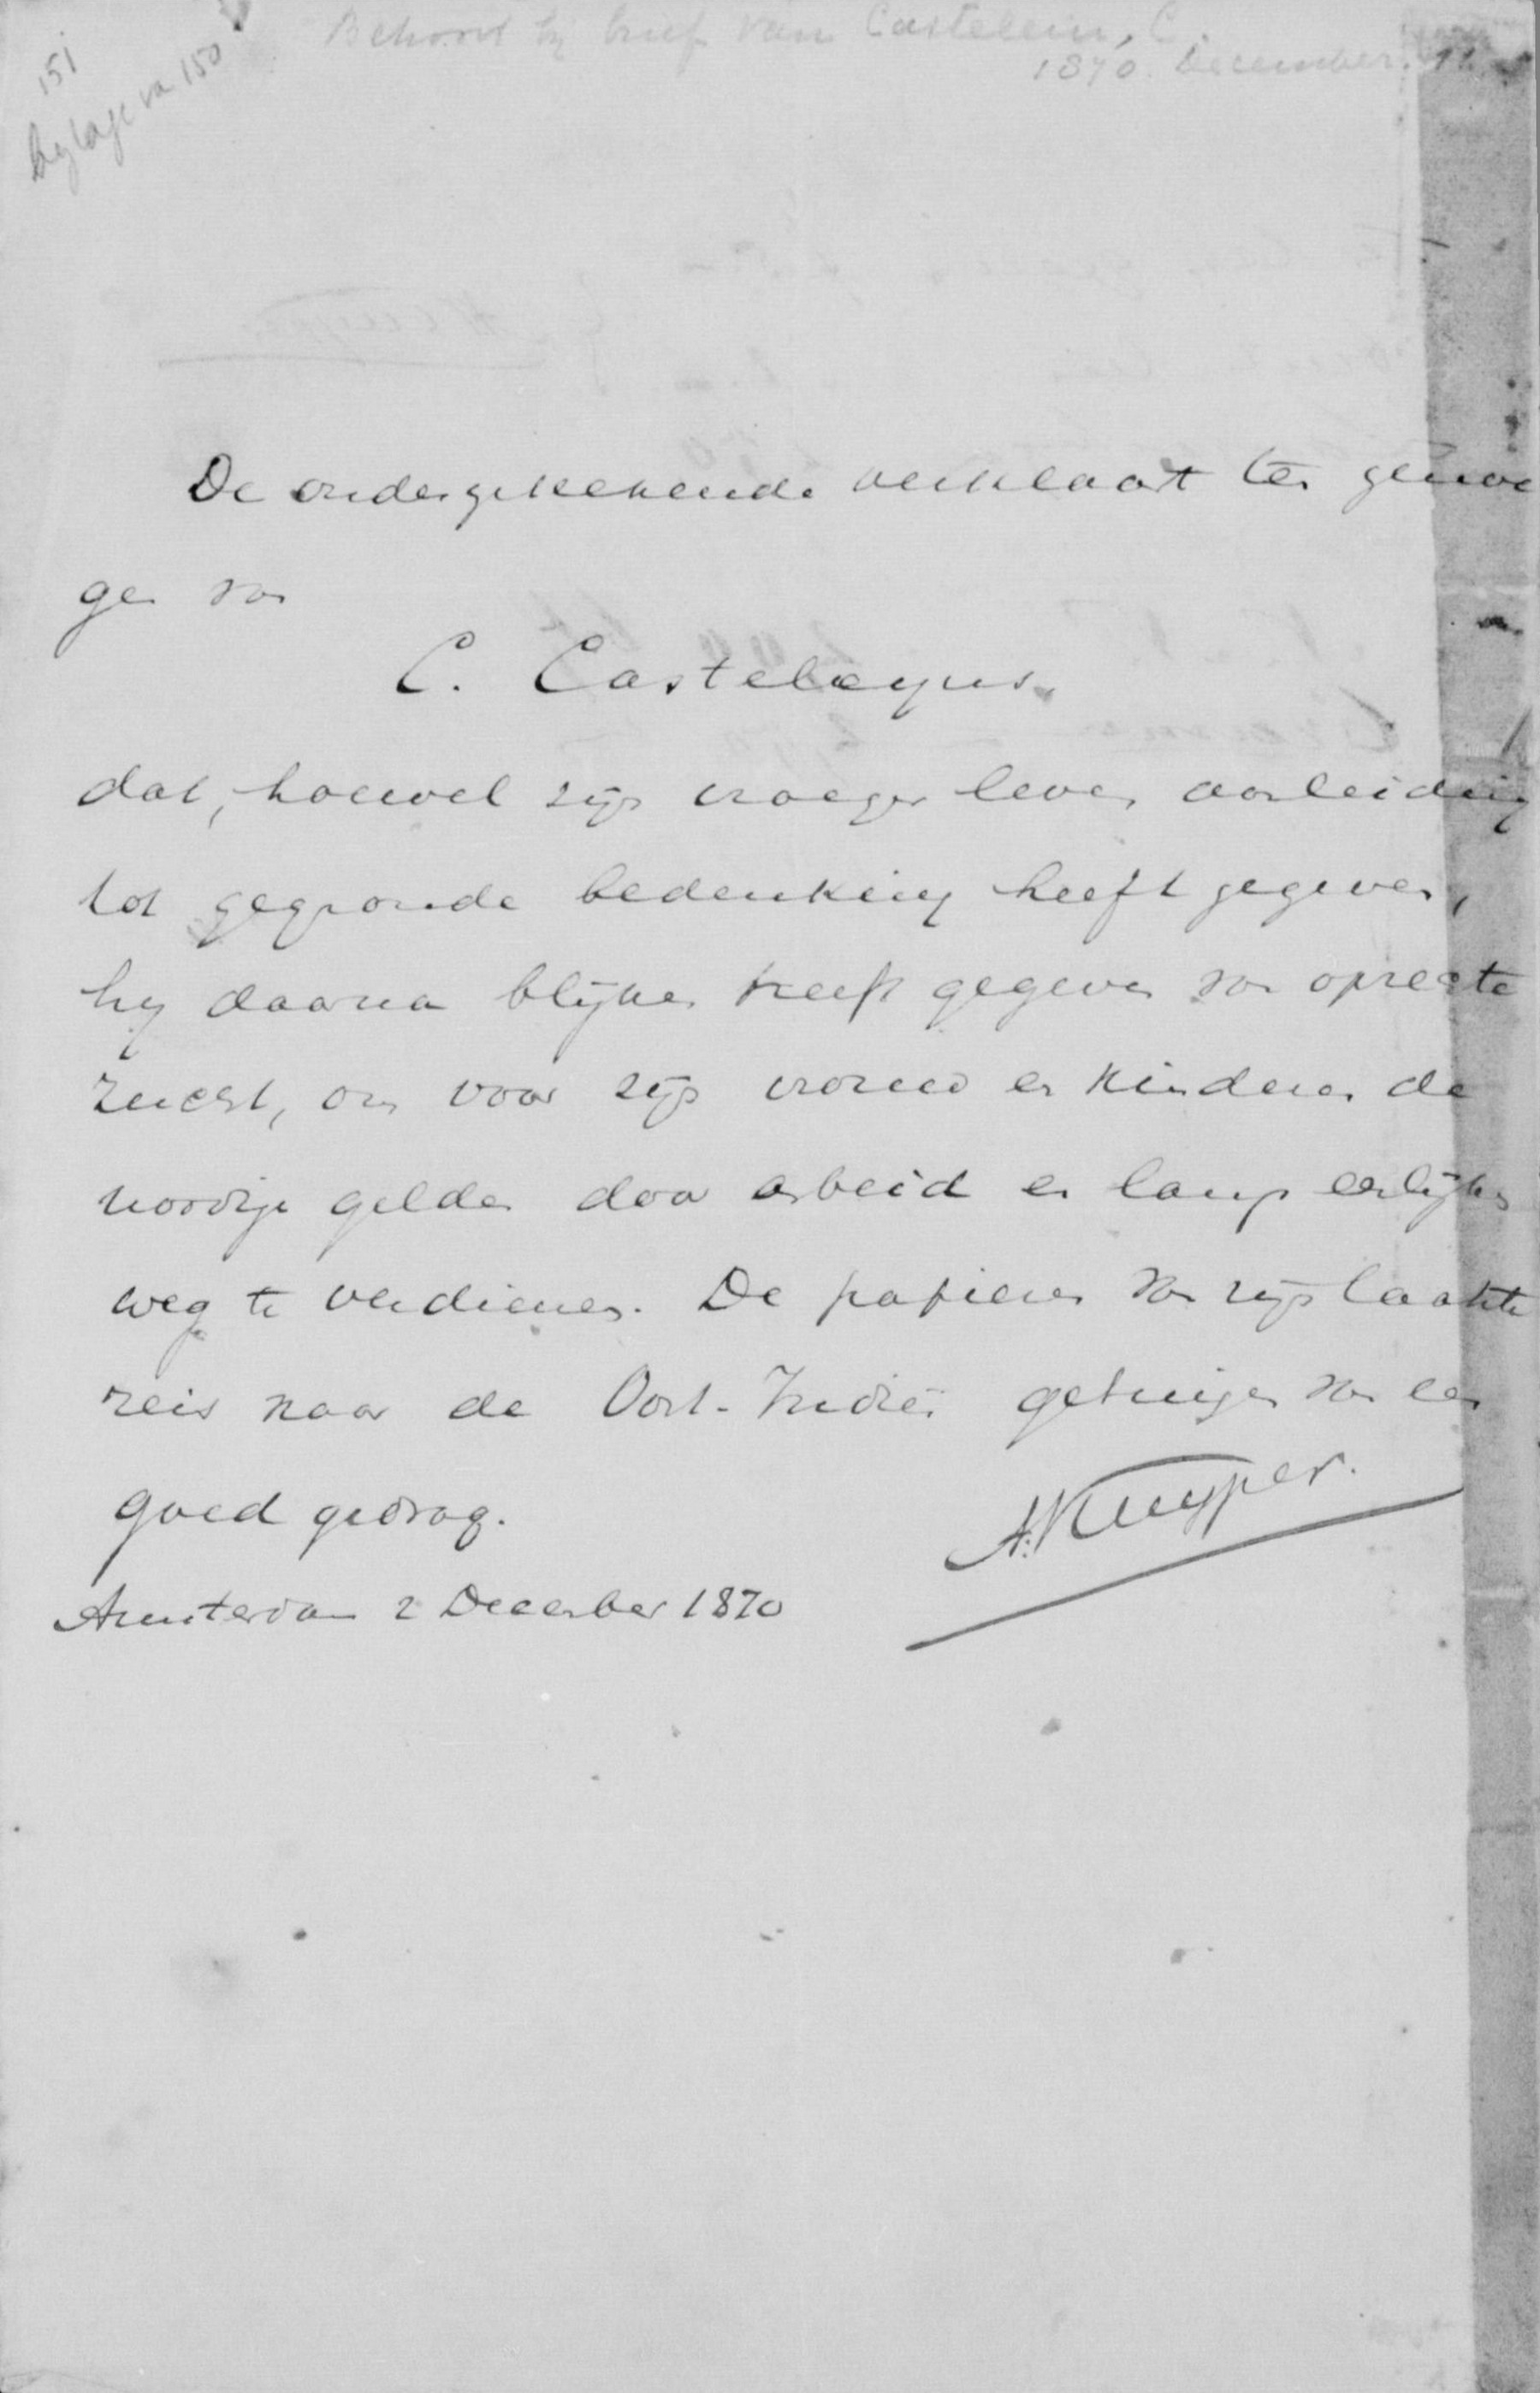 151
bylage va 150
Behoort bij brief van Castelein, C.
1870. December. 11.
De ondergeteekende verklaart ten genoe
gen van
C. Casteleyns.
dat, hoewel zijn vroeger leven aanleiding
tot gegronde bedenking heeft gegeven,
hij daarna blijken heeft gegeven van oprechte
zucht, om voor zijn vrouw en kinderen de
noodige gelden door arbeid en langs eerlijken
weg te verdienen. De papieren van zijn laatste
reis naar de Oost-Indiën getuigen van een
goed gedrag.
A. Kuyper.
Amsterdam 2 December 1870